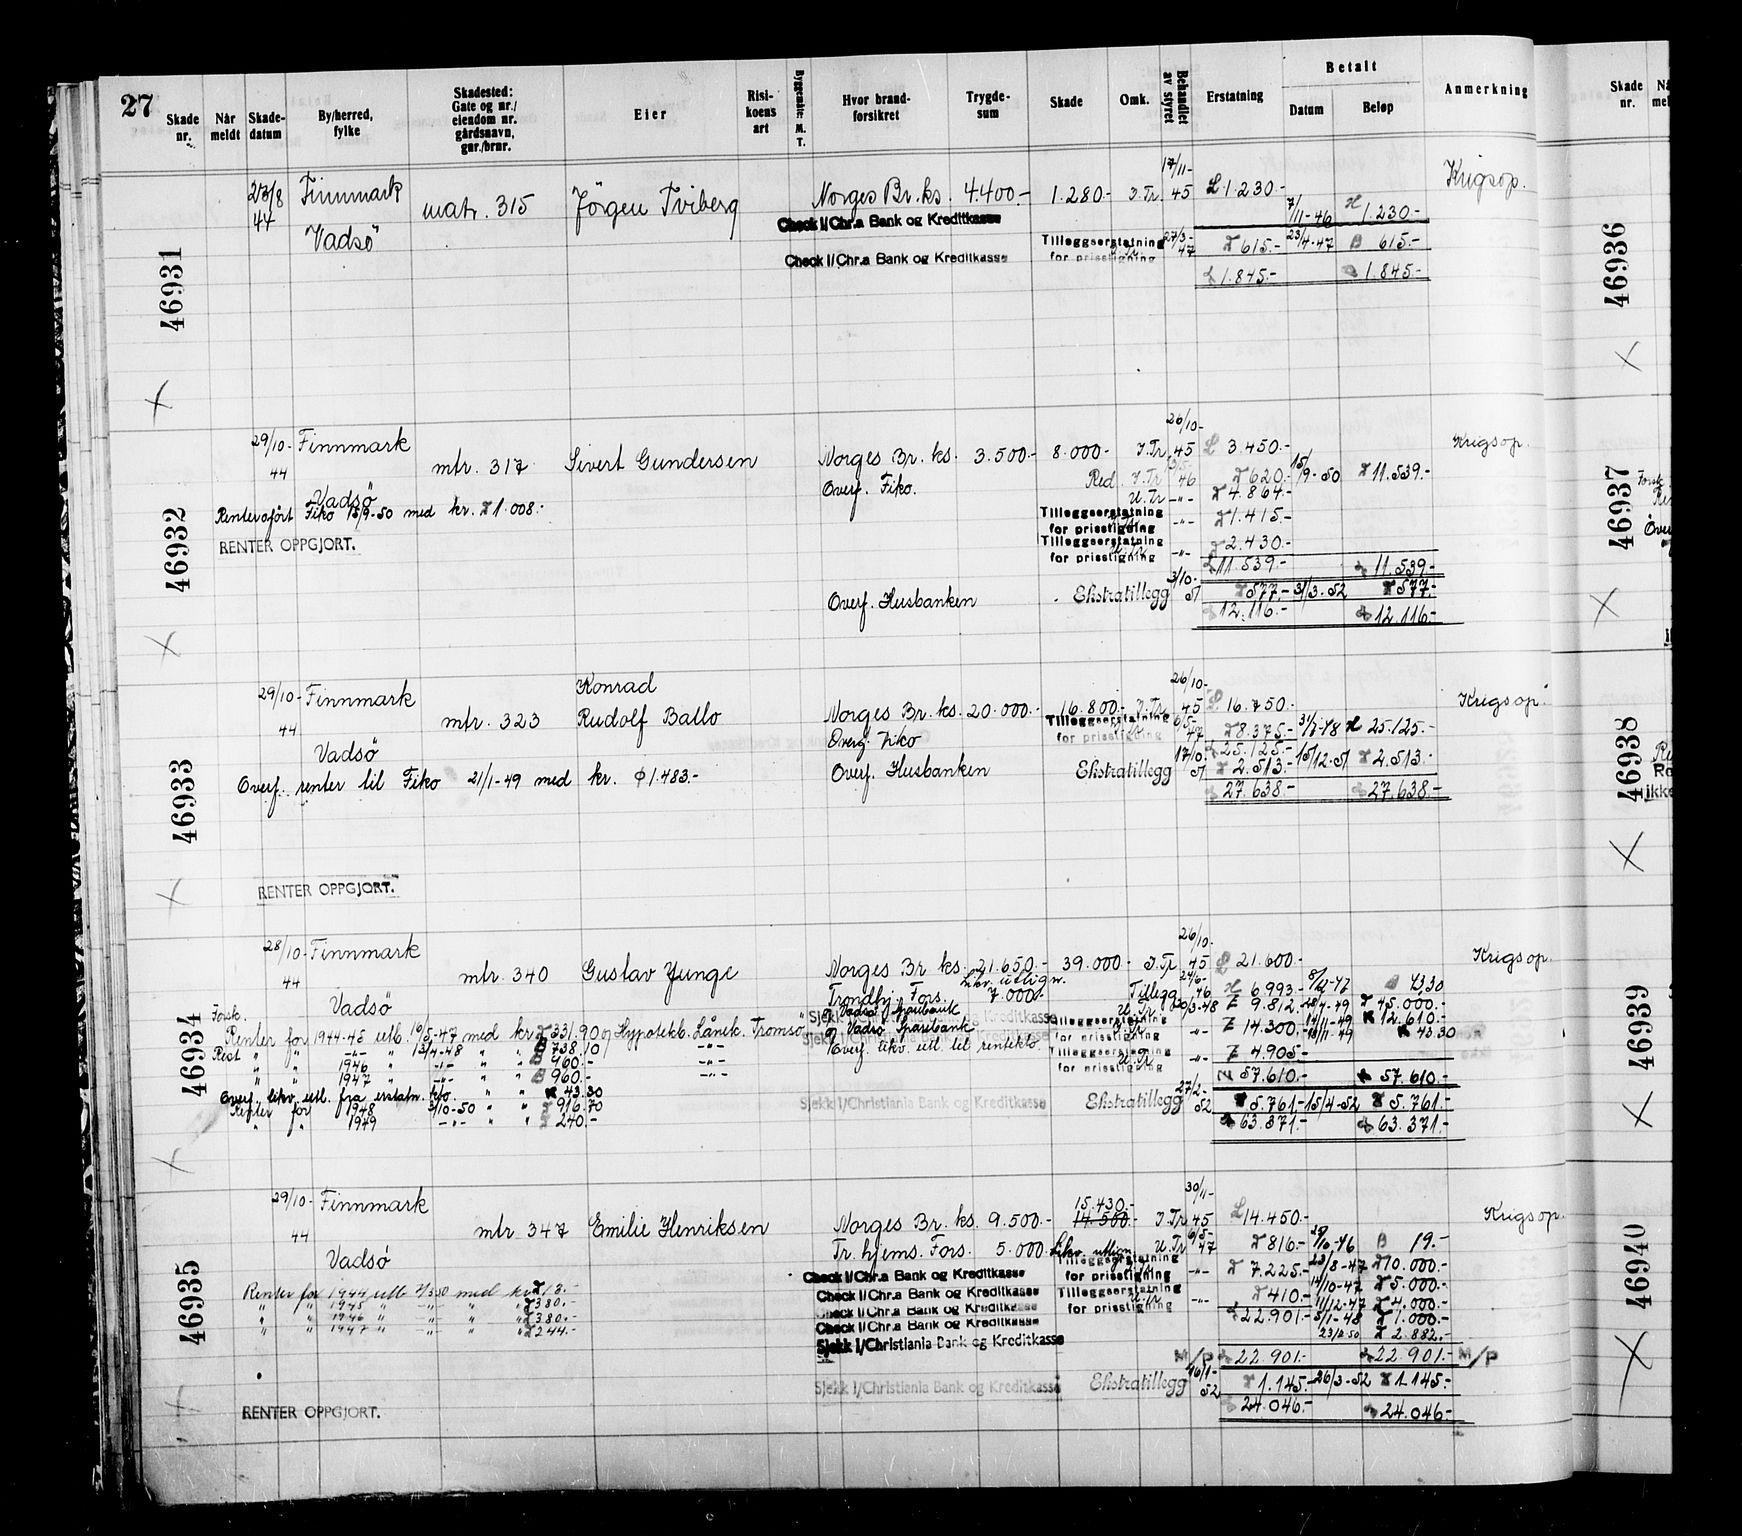 27
Skade nr.
Når meldt
Skade-datum
By/herred, fylke
Skadested: Gate og nr./ eiendom nr. gårdsnavn, gnr./brnr.
Eier
Risi-koens art
Byggemåte: M. T.
Hvor brand-forsikret
Trygde-sum
Skade
Omk.
Behandlet av styret
Erstatning
Betalt
Datum
Beløp
Anmerkning
Skade nr.
46931
23/8 44 Finnmark matr. 315 Jörgen Tviberg Norges Br.ks. 4.400.- 1.280.- I.Tr. 17/11-45 1.230.- Krigsop.
7/11-46 1.230.-
Vadsö
Check I/Chr.a Bank og Kreditkasse
Tilleggserstatning for prisstigning 27/3-47 615.- 23/4-47 615.-
Check I/Chr.a Bank og Kreditkasse
1.845.- 1.845.-
46932
29/10-44 Finnmark mtr. 317 Sivert Gundersen Norges Br. ks. 3.500.- 8.000.- I.Tr. 26/10-45 3.450.- Krigsop.
Vadsö
Overf. Fiko. Red. I.Tr. 46 620.- 15/9-50 11.539.-
U.Tr. -"- 4.864.-
Fiko 15/9-50 med kr. 1.008.-
Tilleggserstatning for prisstigning -"- 1.415.-
RENTER OPPGJORT.
Tilleggserstatning for prisstigning -"- 2.430.-
11.539.- 11.539.-
Overf. Husbanken Ekstratillegg 3/10-51 577.- 31/3-52 577.-
12.116.- 12.116.-
46933
29/10-44 Finnmark mtr. 323 Konrad Rudolf Ballo Norges Br. ks. 20.000.- 16.800.- I.Tr. 26/10-45 16.750.- Krigsop.
Vadsö
Overf. Fiko
Tilleggserstatning for prisstigning 47 8.375.- 25.125.-
25.125.-
Overf. renter til Fiko 21/1-49 med kr. 1.483.-
Overf. Husbanken Ekstratillegg 51 2.513.- 15/12-51 2.513.-
27.638.- 27.638.-
RENTER OPPGJORT.
46934
28/10-44 Finnmark mtr. 340 Gustav Yunge Norges Br. ks. 21.650.- 39.000.- I.Tr. 26/10-45 21.600.- Krigsop.
Vadsö
Trondhj. Fors. 7.000.- Tillegg 46 6.993.-
og Vadsö Sparebank 20/3-48 9.812.- 45.000.-
Forsk.
Renter for 1944-45 utb. med kr og Hypotekb. Lånek. Tromsö
og Vadsö Sparebank
Tilleggserstatning for prisstigning -"- 14.300.- 12.610.-
43.30
Rest " " -"- 13/4-48 " " 738.10 -"-
Overf. likv. utl. til rentekto.
Tilleggserstatning for prisstigning -"- 4.905.-
" " 1946 " -"- " " 960.-
" " 1947 " -"- " " 960.- -"-
57.610.- 57.610.-
Overf. likv. utl. fra erstatn. kto. 43.30
Sjekk I/Christiania Bank og Kreditkasse Ekstratillegg 27/2-52 5.761.- 15/4-52 5.761.-
Renter for 1948 3/10-50 " " 916.70
" " 1949 -"- " " 240.-
63.371.- 63.371.-
46935
29/10-44 Finnmark mtr 347 Emilie Henriksen Norges Br. ks. 9.500.- 15.430.- 14.500.- I.Tr. 30/11-45 14.450.- Krigsop.
Vadsö
Tr. hjems. Fors. 5.000.- U.Tr. 6/5-47 816.- 19.-
Check I/Chr.a Bank og Kreditkasse
Tilleggserstatning for prisstigning -"- 7.225.- 23/8-47 10.000.-
Renter for 1944 utb. med kr 13.-
Check I/Chr.a Bank og Kreditkasse
Tilleggserstatning for prisstigning -"- 410.- 14/10-47 5.000.-
" " 1945 " -"- " " 380.-
Check I/Chr.a Bank og Kreditkasse
22.901.- 11/12-47 4.000.-
" " 1946 " -"- " " 380.-
Check I/Chr.a Bank og Kreditkasse
1.000.-
" " 1947 " -"- " " 244.-
Sjekk I/Christiania Bank og Kreditkasse
2.882.-
M/P 22.901.- 22.901.- M/P
Sjekk I/Christiania Bank og Kreditkasse Ekstratillegg 16/1-52 1.145.- 26/3-52 1.145.-
RENTER OPPGJORT.
24.046.- 24.046.-
46936
46937
46938
46939
46940